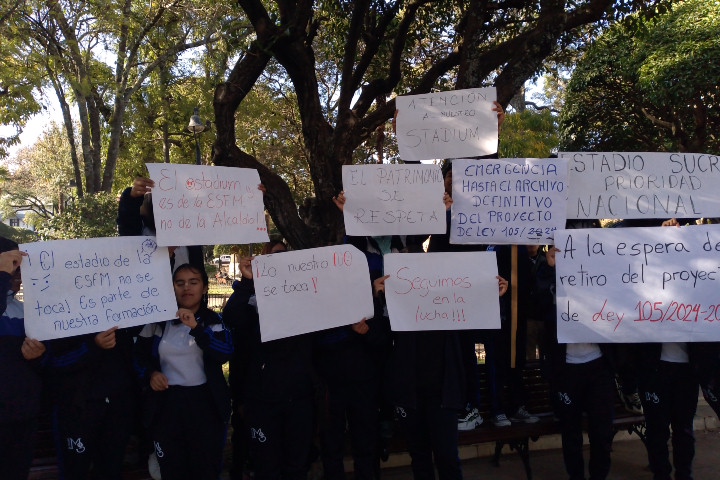 ATENCIÓN
A NUESTRO
STADIUM
ESTADIO SUCRE
PRIORIDAD
NACIONAL
EL PATRIMONIO
SE
RESPETA
EMERGENCIA
HASTA EL ARCHIVO
DEFINITIVO
DEL PROYECTO
DE LEY 105/
El estadium
es de la ESFM
no de la Alcaldía!
¡El estadio de la
ESFM no se
toca! Es parte de
nuestra formación.
¡Lo nuestro no
se toca!
Seguimos
en la
lucha!!!
A la espera del
retiro del proyec
de Ley 105/2024-20
MS
MS